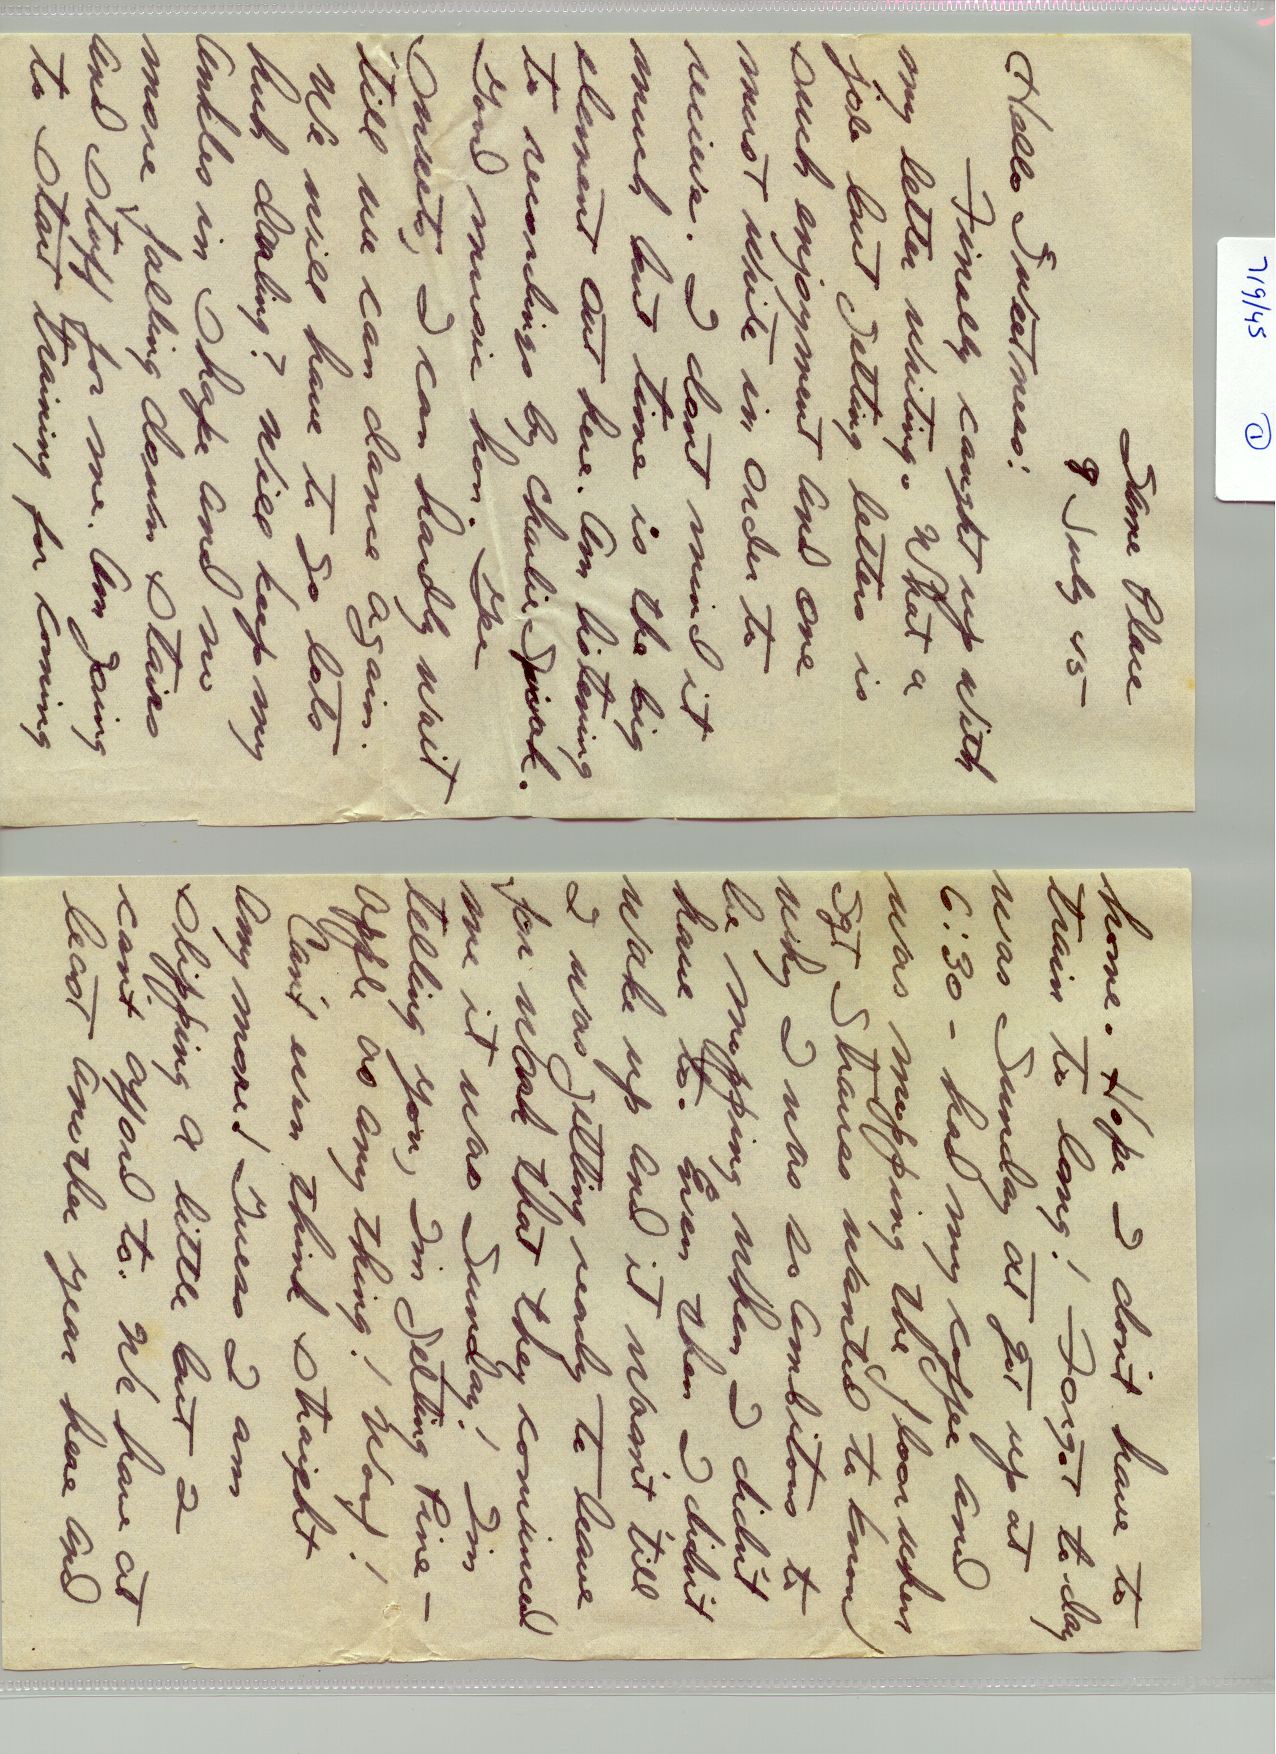 7/9/45 ①
Same Place
9 July 45
Hello Sweetness:
Finally caught up with
my letter writing. What a
job but getting letters is
such enjoyment and one
must write in order to
receive. I dont mind it
much but time is the big
element out here. Am listening
to recordings by Charlie Spivak.
Good music hon. Gee
Sweets, I can hardly wait
till we can dance again.
We will have to go lots
huh darling? Will keep my
ankles in shape and no
more falling down stairs
and stuff for me. Am going
to start training for coming
home. Hope I don't have to
train to long! Forgot to-day
was Sunday at got up at
6:30 - had my coffee and
was mopping the floor when
Sgt Straus wanted to know
why I was so ambitous to
be mopping when I didn't
have to. Even then I didn't
wake up and it wasn't till
I was getting ready to leave
for work that they convinced
me it was Sunday! I'm
telling you, I'm getting Pine-
apple as any thing! Woof!
Can't even think straight
any more! Guess I am
slipping a little but I
can't afford to. We have at
least another year here and